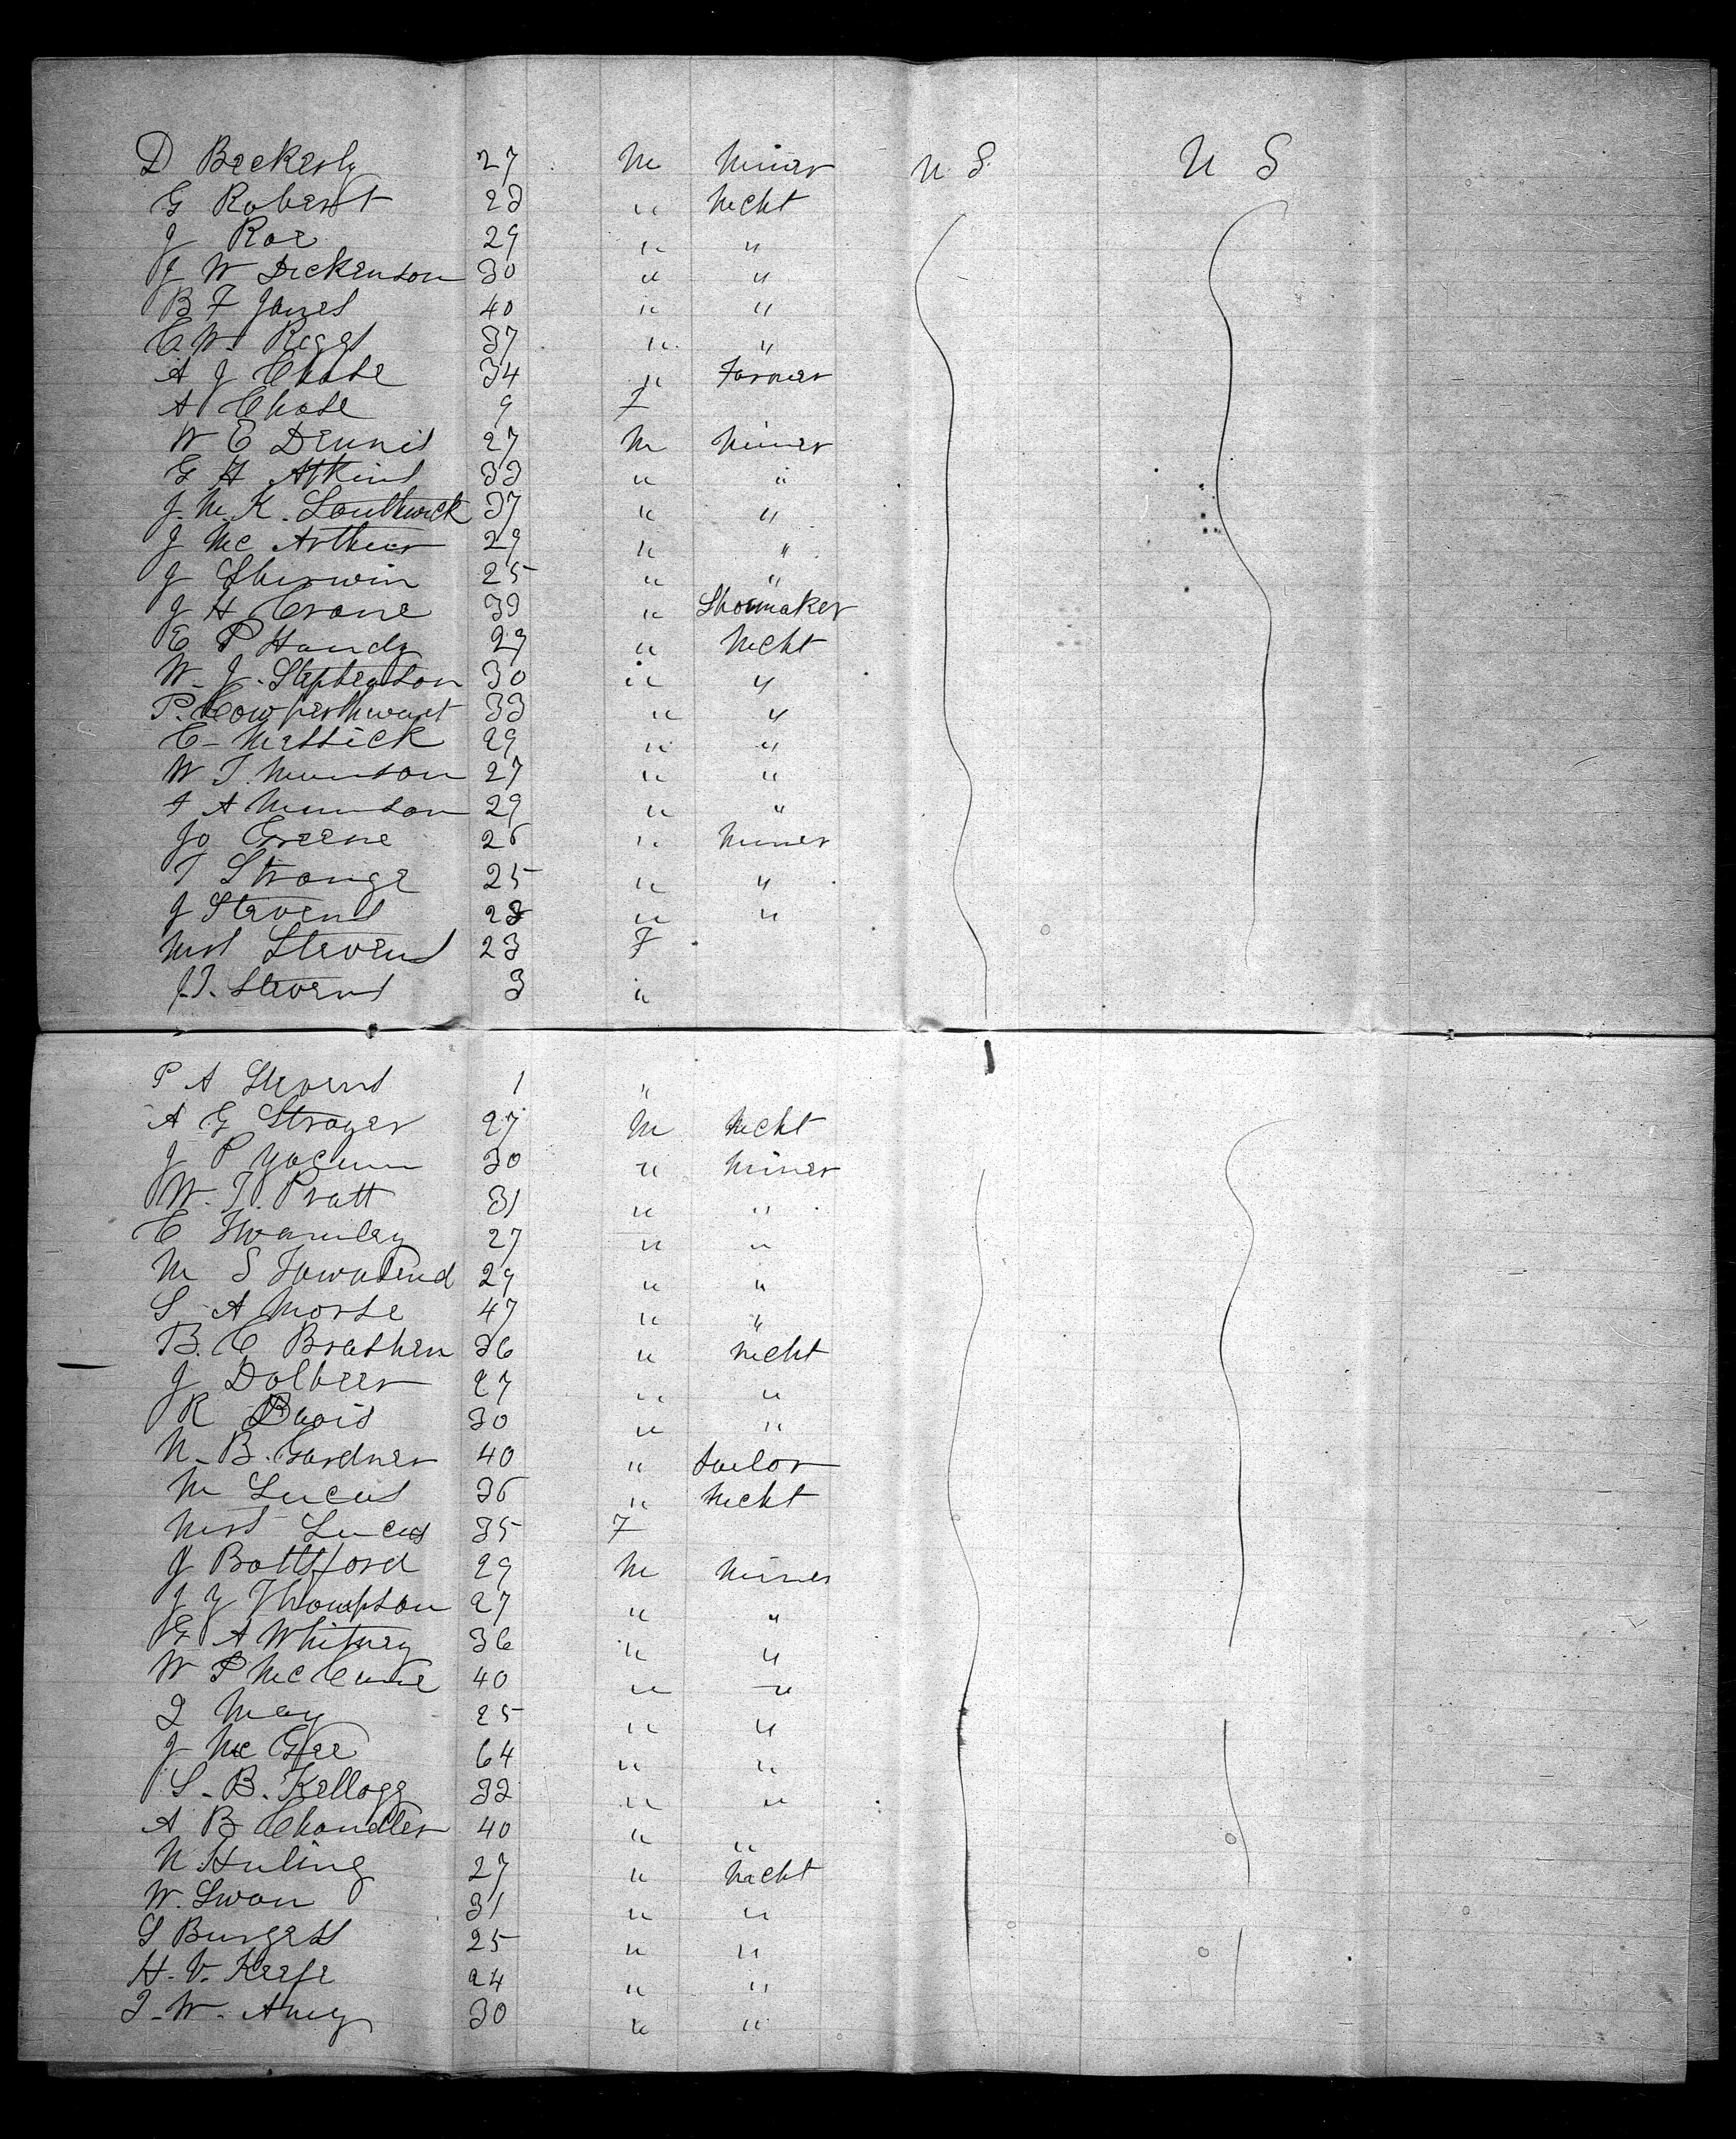 D Beckerly 27 M Miner U S U S
G Robert 23 " Mcht
J Roe 29 " "
J W Dickenson 30 " "
B F Jones 40 " "
C. W. Reggs 37 " "
A J Chase 34 " Farmer
A Chase 9 F
W E Dennis 27 M Miner
G H Atkins 33 " "
J. M. K. Southwick 37 " "
J Mc Arthur 29 " "
J Sherwin 25 " "
J H Crane 39 " Shoemaker
E P Handy 29 " Mcht
W. J. Stephenson 30 " "
P. Cowperthwait 33 " "
E - Messick 29 " "
W T. Munson 27 " "
A Munson 29 " "
Jo Greene 26 " Miner
T Strange 25 " "
J Stevens 28 " "
Mrs Stevens 23 F
J. T. Stevens 3 "
P A Stevens 1 "
A G Stroger 27 M Mcht
J P Yocum 30 " Miner
W. T. Pratt 31 " "
E Twamley 27 " "
M S Townsend 29 " "
S A Morse 47 " "
B. C Brashen 36 " Mcht
J Dolbeer 27 " "
R Davis 30 " "
N. B. Gardner 40 " Sailor
M Lucas 36 " Mcht
Mrs Lucas 35 F
J Bottsford 29 M Miner
J Y Thompson 27 " "
G A Whitney 36 " "
W P McCune 40 " "
I May 25 " "
J McGee 64 " "
S. B. Kellogg 32 " "
A B Chandler 40 " "
N Huling 27 " Mcht
W. Swan 31 " "
S Burgess 25 " "
H. V. Keefe 24 " "
I. W. Amy 30 " "